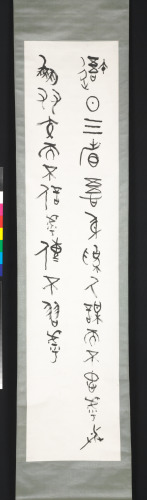 吾日三省吾身為人謀而不忠乎與
朋友交而不信乎傳不習乎